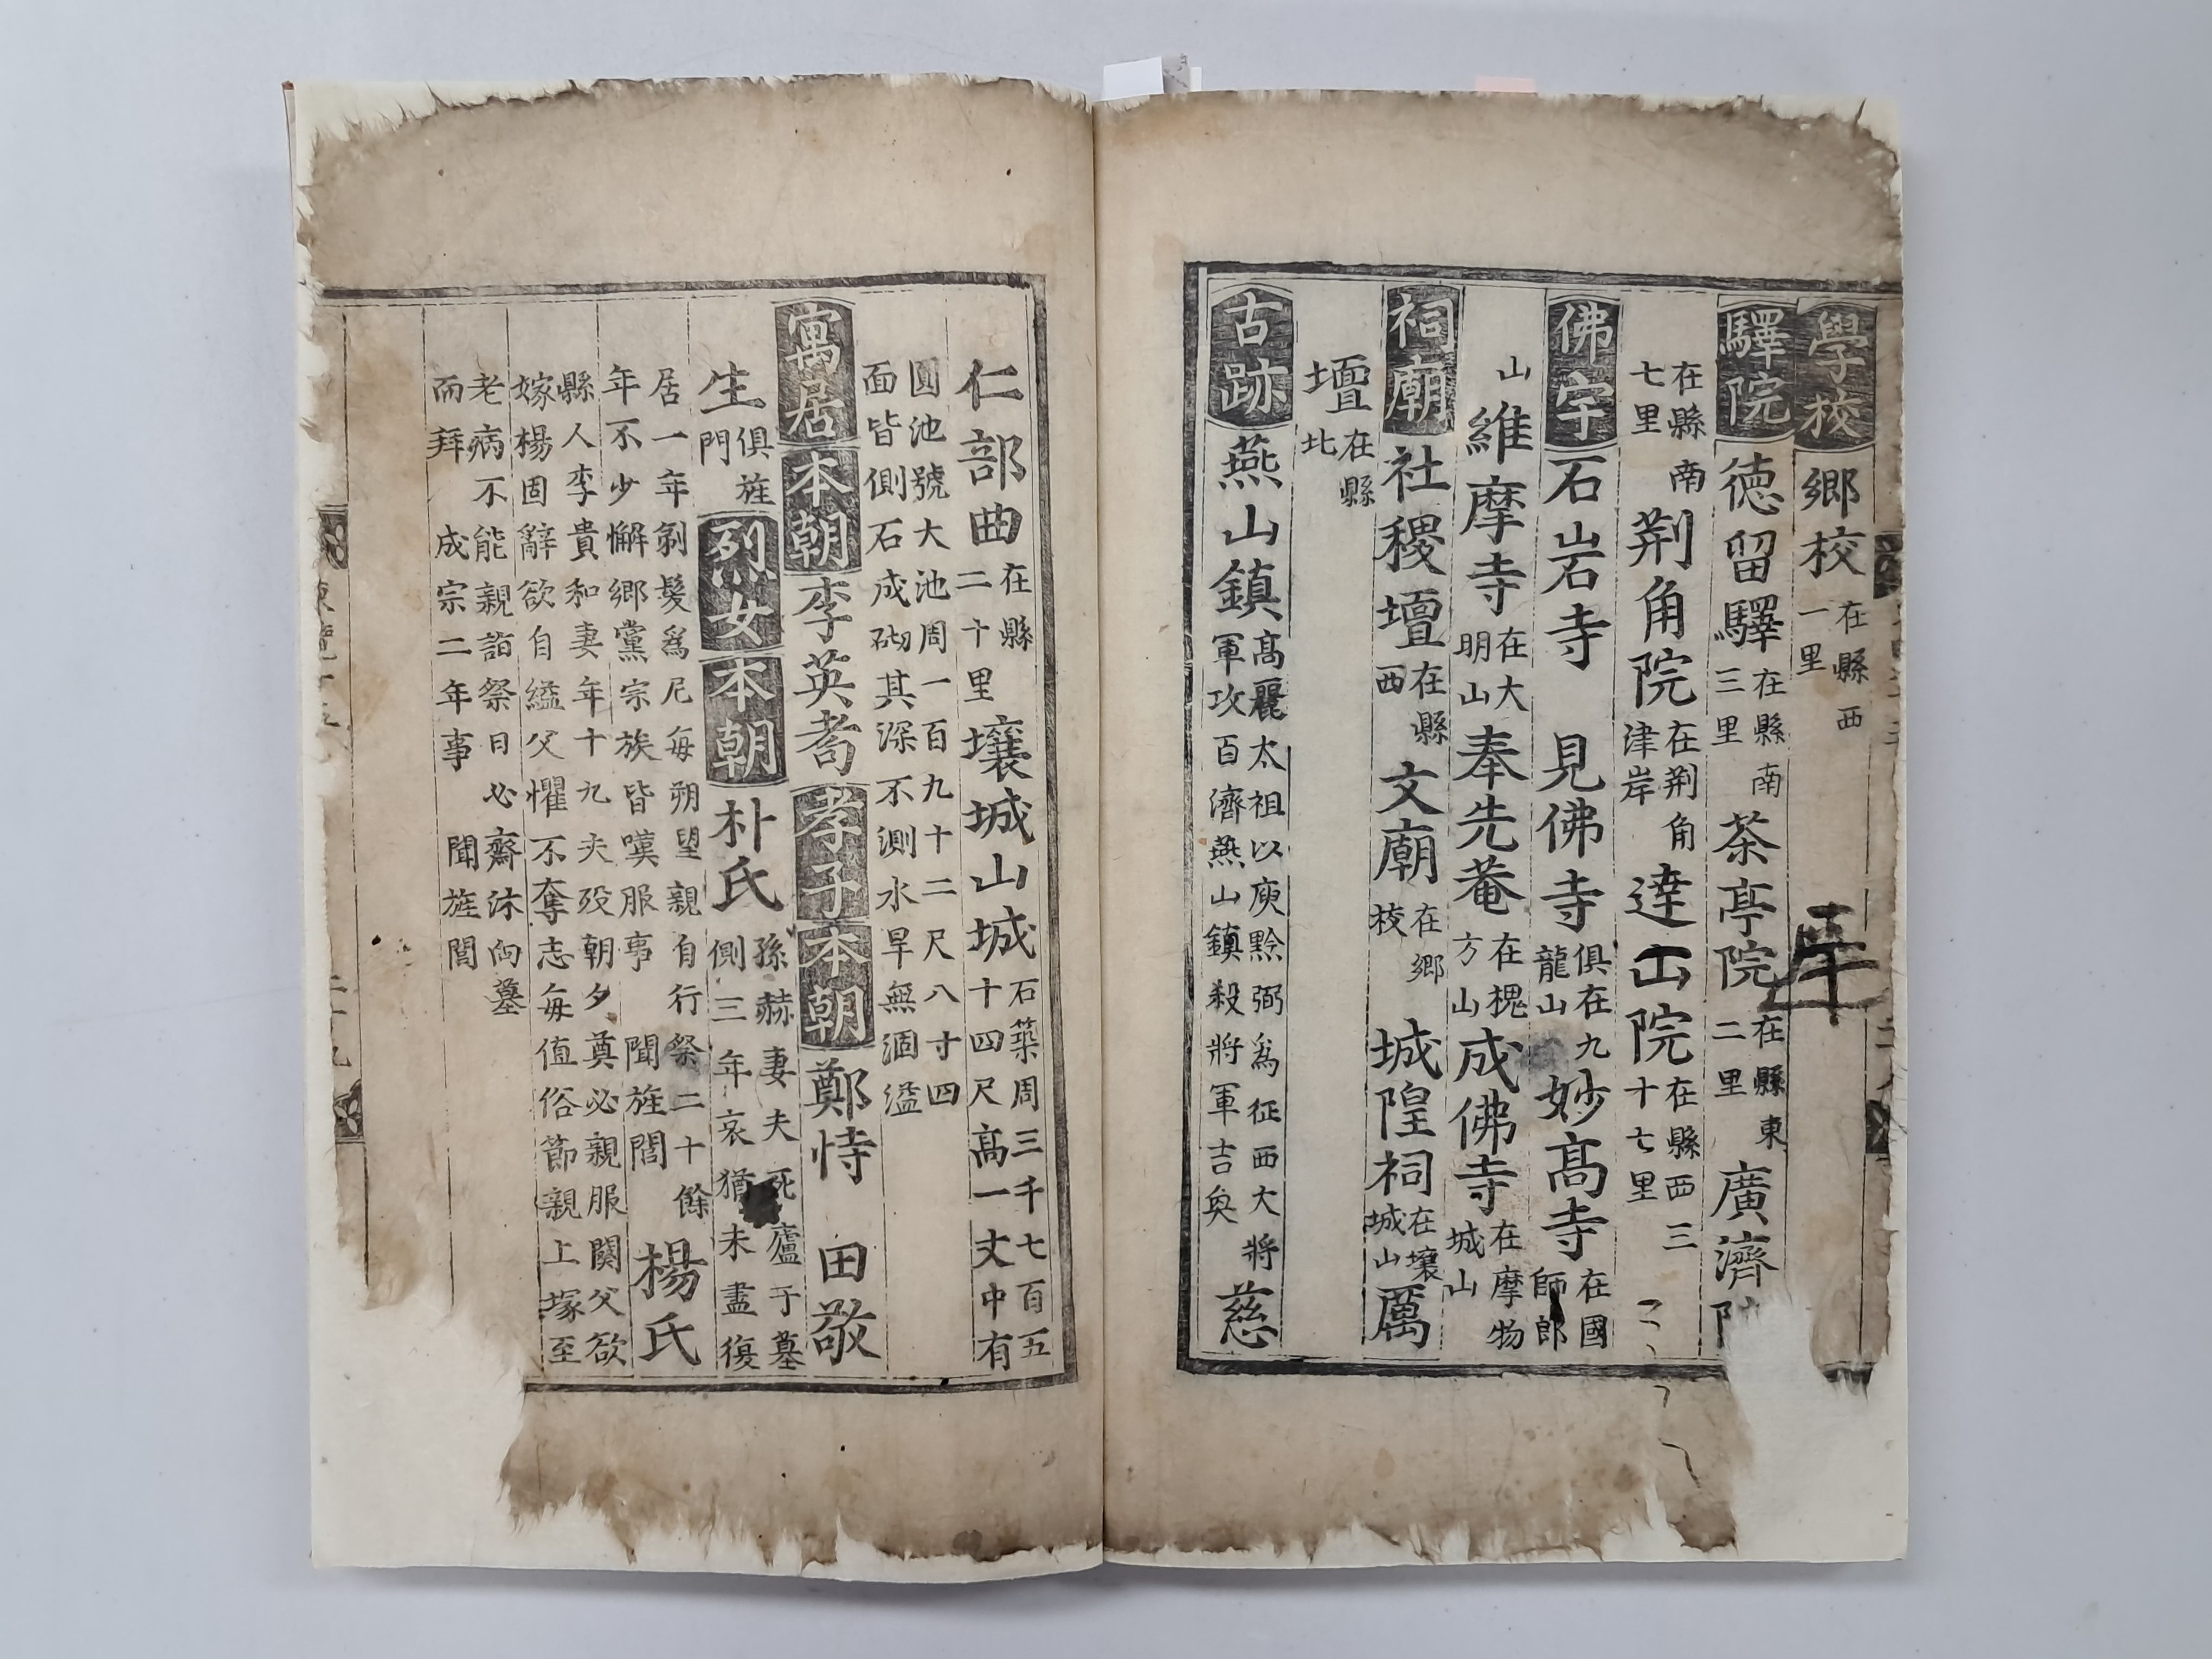 學校鄕校在縣西一里
驛院德留驛在縣南三里茶亭院在縣東二里廣濟
在縣南七里荆角院在荆角津岸達山院在縣西三十七里
佛宇石岩寺見佛寺俱在九龍山妙高寺在國師郎
山維摩寺在大明山奉先菴在槐方山成佛寺在摩物城山
祠廟社稷壇在縣西文廟在鄕校城隍祠在壤城山厲
壇在縣北
古跡燕山鎭高麗太祖以庾黔弼爲征西大將軍攻百濟燕山鎭殺將軍吉奐慈
仁部曲在縣二十里壤城山城石築周三千七百五十四尺高一丈中有
圓池號大池周一百九十二尺八寸四面皆側石成砌其深不測水旱無涸溢
寓居本朝李英耉孝子本朝鄭恃田敬
生俱旌門烈女本朝朴氏孫赫妻夫死廬于墓側三年哀猶未盡復
居一年剃髮爲尼每朔望親自行祭二十餘年不少懈鄕黨宗族皆嘆服事聞旌閭楊氏
縣人李貴和妻年十九夫歿朝夕奠必親服闋父欲嫁楊固辭欲自縊父懼不奪志每值俗節親上塚至
老病不能親詣祭日必齋沐向墓而拜成宗二年事聞旌閭